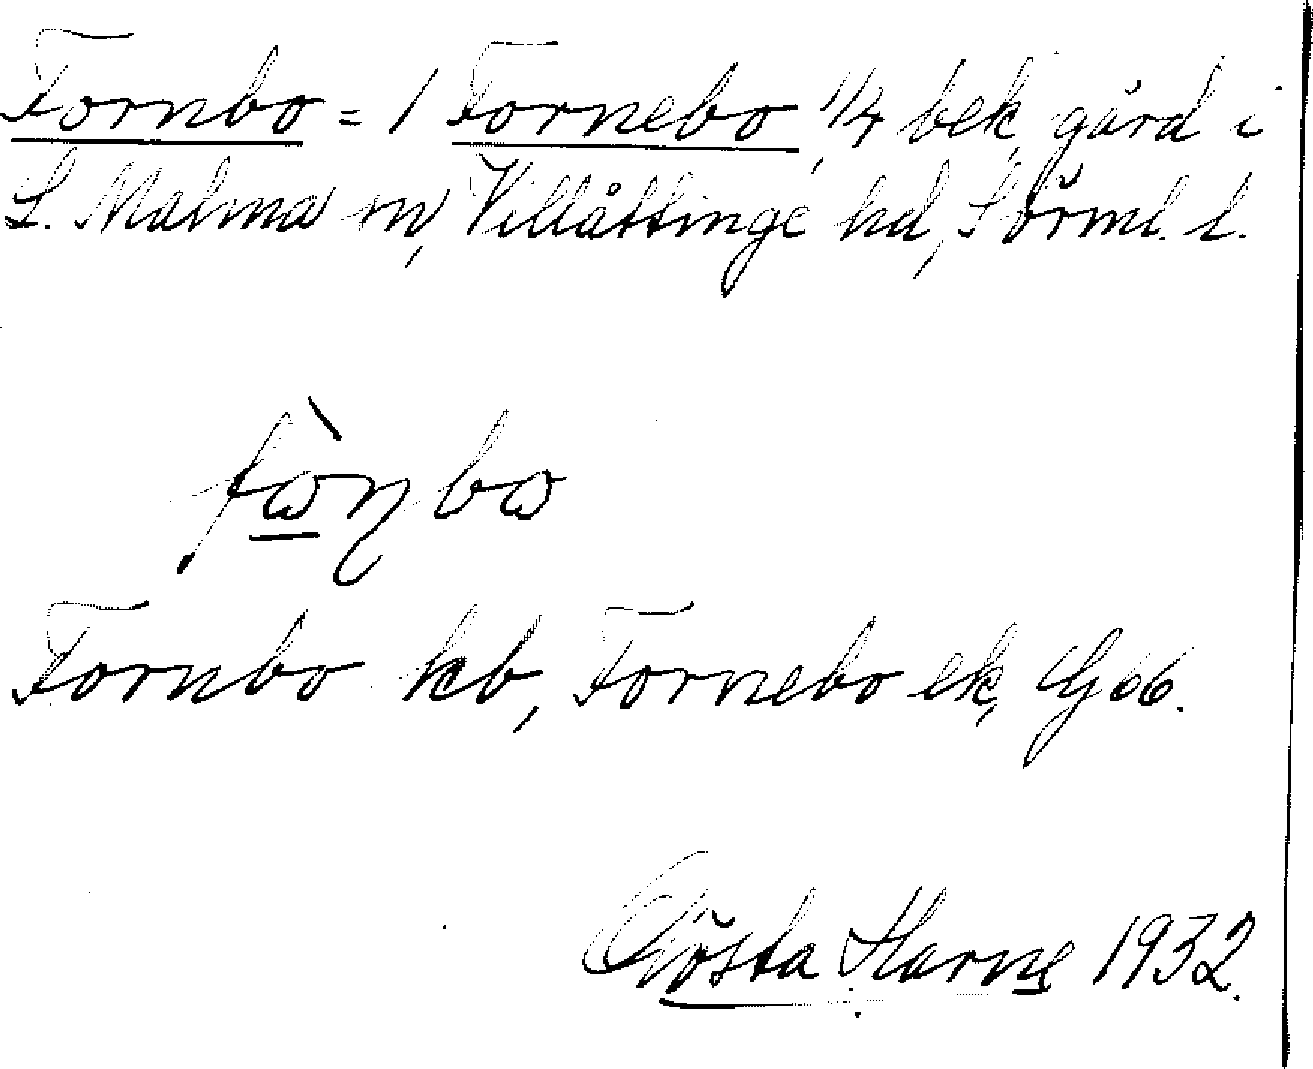 Fornbo = 1 Fornebo, 1/4 bek, gård i
L. Malma sn, Villåttinge hd, Sörml. l.
fὼɳbω
Fornbo kb, Fornebo ek, Gj 66.
Gösta Harne 1932.